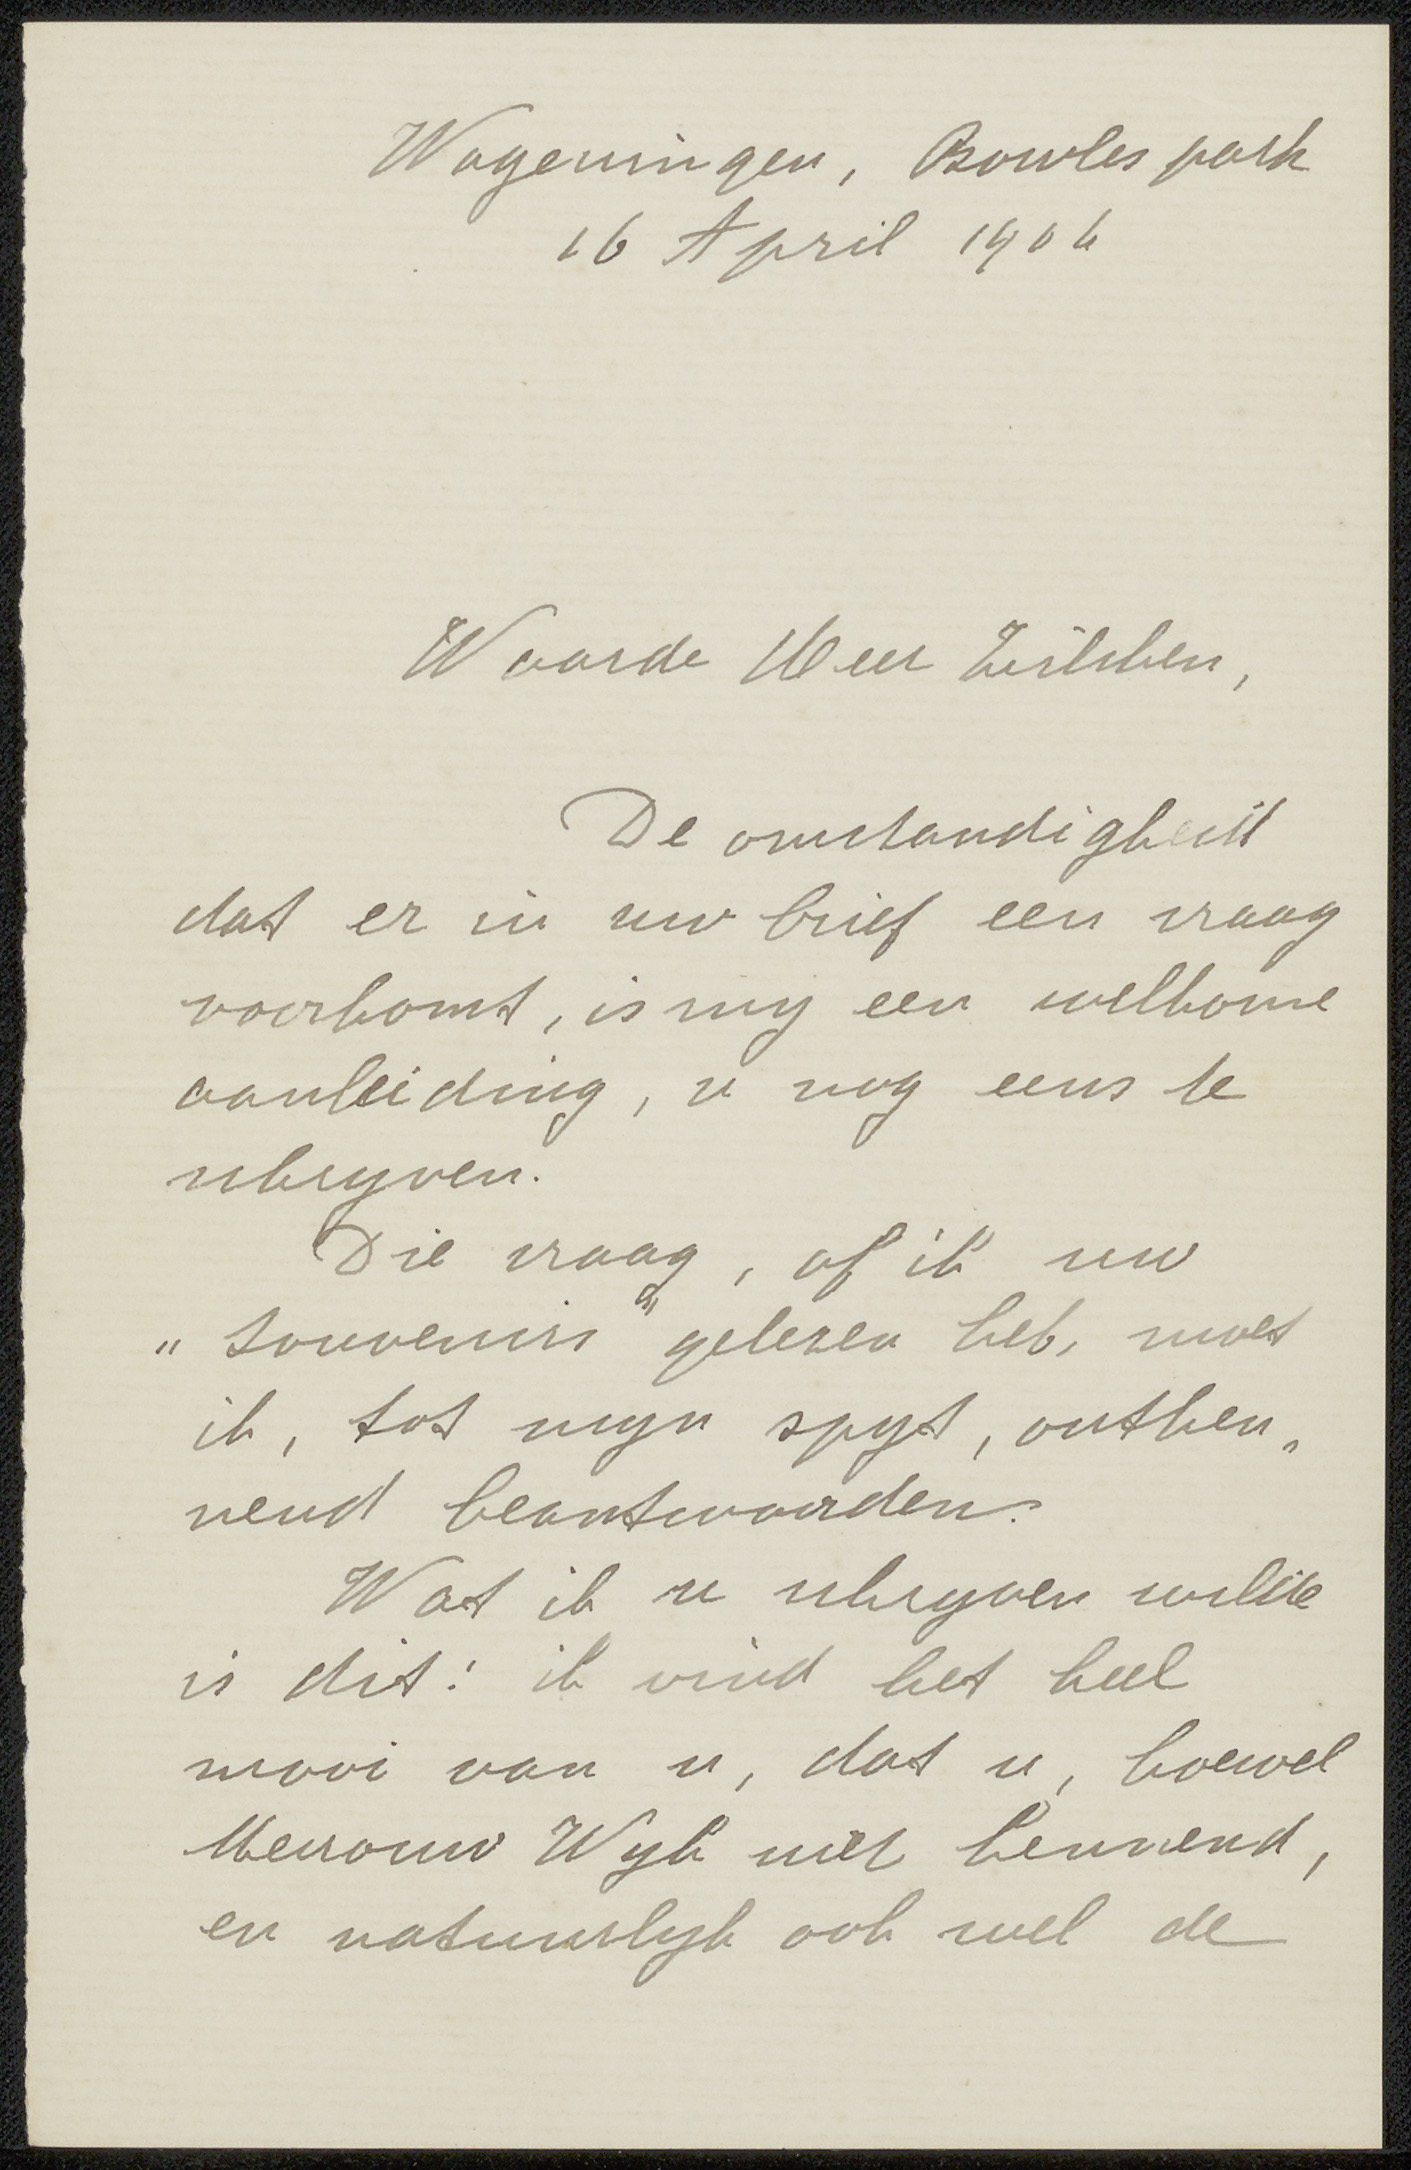 Wageningen, Bowlespark
16 April 1906
Waarde Heer Zilcken,
De omstandigheid
dat er in uw brief een vraag
voorkomt, is my een welkome
aanleiding, u nog eens te
schryven.
Die vraag, of ik uw
„Souvenirs” gelezen heb, moet
ik, tot myn spyt, ontken„
nend beantwoorden.
Wat ik u schryven wilde
is dit: ik vind het heel
mooi van u, dat u, hoewel
Mevrouw Wyk niet kennend,
en natuurlyk ook wel de